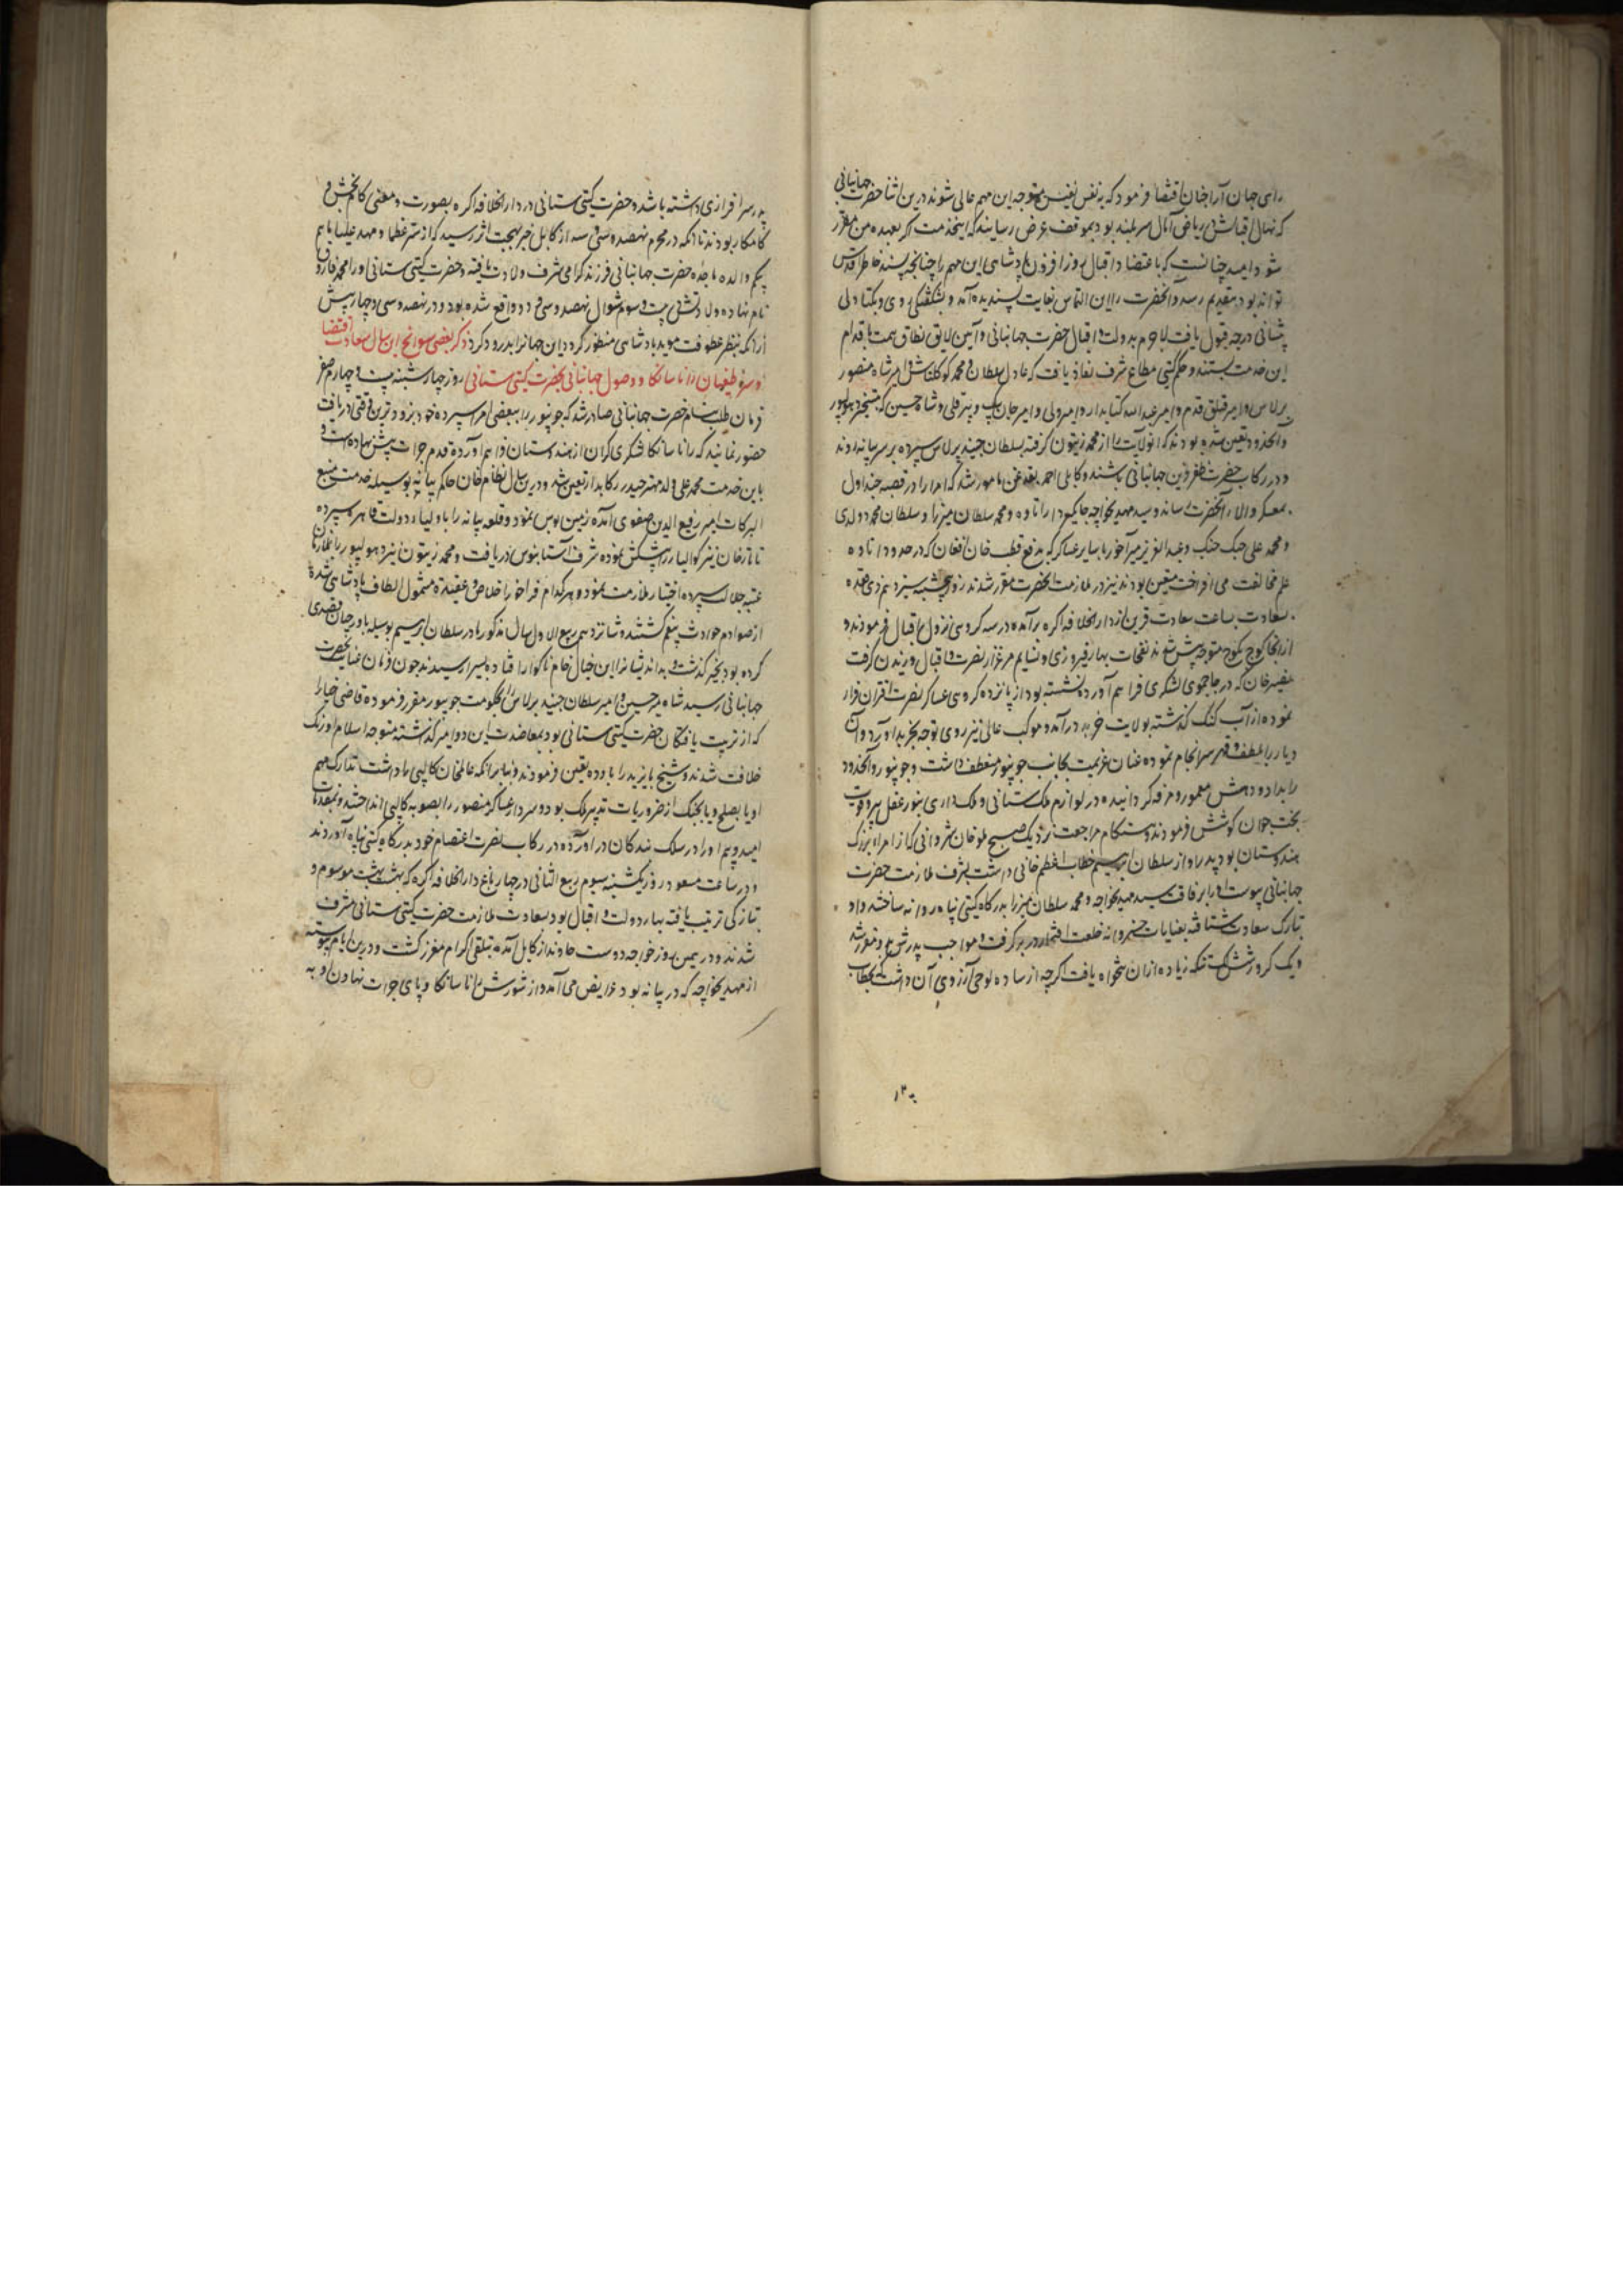 رای جهان آرا چنان اقتضا فرمود که به نفس نفیس متوجه این مهم عالی شوند درین اثنا حضرت جهانبانی
که نهال اقبالش در ریاض آمال سربلند بود بموقف عرض رسانیدند که اینخدمت اگر بعهده من مقرر
شود امید چنانست که باعتضاد اقبال روزافزون پادشاهی این مهم را چنانچه پسند خاطر اقدس
تواند بود بتقدیم رسد و آنحضرت را این التماس بغایت پسندیده آمد و بشکفتگی روی و بکشاده
پیشانی درجه قبول یافت لاجرم بدولت و اقبال حضرت جهانبانی و آیین لایق نطاق همت باقدام
این خدمت بستند و حکم گیتی مطاع شرف نفاذ یافت که عادل سلطان و محمد کوکلتاش و امیر شاه منصور
برلاس و امیر قتلق قدم و امیر عبدالله کتابدار و امیر ولی و امیر جان بیک و پیر قلی و شاه حسین که بتسخیر دهولپور
و آنحدود تعین شده بودند که آنولایت را از محمد زیتون گرفته بسلطان جنید برلاس سپرده بر سر بیانه روند
و در رکاب حضرت ظفر قرین جهانبانی باشند و کابلی احمد بقدغن مامور شد که امرا را در قصبه چندوار
بمعسکر والای آنحضرت رساند و سید مهدی خواجه جایگیردار اتاوه و محمد سلطان میرزا و سلطان محمد دولدی
و محمد علی جنگ جنگ و عبدالعزیز میرآخور با سایر عساکر که بدفع قطب خان افغان که در حدود اتاوه
علم مخالفت می افراخت متعین بودند نیز در ملازمت آنحضرت مقرر شدند روز پنجشنبه سیزدهم ذی قعده
بسعادت ساعت سعادت قرین از دارالخلافه اگره برآمده در سه کروهی نزول اقبال فرمودند و
ازانجا کوچ بکوچ متوجه پیش شدند نفحات بهار فیروزی و نسایم مرغزار نصرت و اقبال وزیدن گرفت
نصیر خان که در جاجموی لشکری فراهم آورده نشسته بود از پانزده کروهی عساکر نصرت اقتران فرار
نموده از آب گنگ گذشته بولایت خرید درآمد و موکب عالی نیز روی توجه بخرید آورد و آن
دیار را بلطف و قهر سرانجام نموده عنان عزیمت بجانب جونپور منعطف داشت و جونپور و آنحدود
را بداد و دهش معمور و مرفه گردانیده در لوازم ملک ستانی و ملک داری بنور عقل پیر و قوت
بخت جوان کوشش فرمودند و هنگام مراجعت نزدیک صبح فتح خان شروانی که از امراء بزرگ
هندوستان بود پدر او از سلطان ابراهیم خطاب اعظم خانی داشت بشرف ملازمت حضرت
جهانبانی پیوست او را برفاقت سید مهدی خواجه و محمد سلطان میرزا بدرگاه گیتی پناه روانه ساختند و او
بتارک سعادت شتافته بعنایات خسروانه خلعت افتخار در بر گرفت و مواجب پدرش بدو مقرر شد
و یک کرور و شش لک تنکه زیاده ازان تنخواه یافت اگرچه از ساده لوحی آرزوی آن داشت که بخطاب
پدر سرافرازی داشته باشد و حضرت گیتی ستانی در دارالخلافه اگره بصورت و معنی کامبخش و
کامگار بودند تا آنکه در محرم نهصد و سی و سه از کابل خبر بهجت اثر رسید که از ستر عظما و مهد علیا ماهم
بیگم والده ماجده حضرت جهانبانی فرزند گرامی شرف ولادت یافته و حضرت گیتی ستانی او را محمد فاروق
نام نهاده ولادتش بیست و سوم شوال نهصد و سی و دو واقع شده بود و در نهصد و سی و چهار پیش
از آنکه بنظر عطوفت موید پادشاهی منظور گردد این جهانرا بدرود کرد ذکر بعضی سوانح این سال سعادت اقتضا
و سر طغیان رانا سانگا و وصول جهانبانی بحضرت گیتی ستانی روز چهارشنبه بیست و چهارم صفر
فرمان طلب بنام حضرت جهانبانی صادر شد که جونپور را ببعضی امرا سپرده خود بزودترین وقتی دریافت
حضور نمایند که رانا سانگا لشکری گران از هندوستان فراهم آورده قدم جرات پیش نهاده است و
باین خدمت محمد علی ولد مهتر حیدر رکابدار تعین شد و درین سال نظام خان حاکم بیانه بوسیله خدمت منبع
البرکات امیر رفیع الدین صفوی آمده زمین بوس نمود و قلعه بیانه را باولیاء دولت قاهره سپرده
تاتار خان نیز گوالیار را پیشکش نموده شرف آستانبوس دریافت و محمد زیتون نیز دهولپور را بملازمان
عتبه جلال سپرده اختیار ملازمت نمود و هر کدام فراخور اخلاص و عقیدت مشمول الطاف پادشاهی شده
از صوادم حوادث بیغم گشتند و شانزدهم ربیع الاول سال مذکور مادر سلطان ابراهیم بوسیله باورچیان قصدی
کرده بود بخیر گذشت و بداندیشانرا این خیال خام ناگوار افتاده بسزا رسیدند چون فرمان عنایت حضرت
جهانبانی رسید شاه میر حسین و امیر سلطان جنید برلاس را بحکومت جونپور مقرر فرموده قاضی جیا را
که از تربیت یافتگان حضرت گیتی ستانی بود بمعاضدت این دو امیر گذاشته متوجه اسلام اورنگ
خلافت شدند و شیخ بایزید را باوده تعین فرمودند و بنابر آنکه عالم خان کالپی را داشت تدارک مهم
او یا بصلح و یا بجنگ از ضروریات تدبیر ملک بود و سردار عساکر منصور را بصوب کالپی انداختند و بمقدمات
امید و بیم او را در سلک بندگان درآورده در رکاب نصرت اعتصام خود بدرگاه گیتی پناه آوردند
و در ساعت مسعود روز یکشنبه سیوم ربیع الثانی در چهار باغ دارالخلافه اگره که بهشت بهشت موسوم و
بتازگی ترتیب یافته بهار دولت و اقبال بود سعادت ملازمت حضرت گیتی ستانی مشرف
شدند و در همین روز خواجه دوست خاوند از کابل آمده بتلقی اکرام معزز گشت و درین ایام پیوسته
از مهدی خواجه که در بیانه بود عرایض می آمد از شورش رانا سانگا و پای جرات نهادن او به